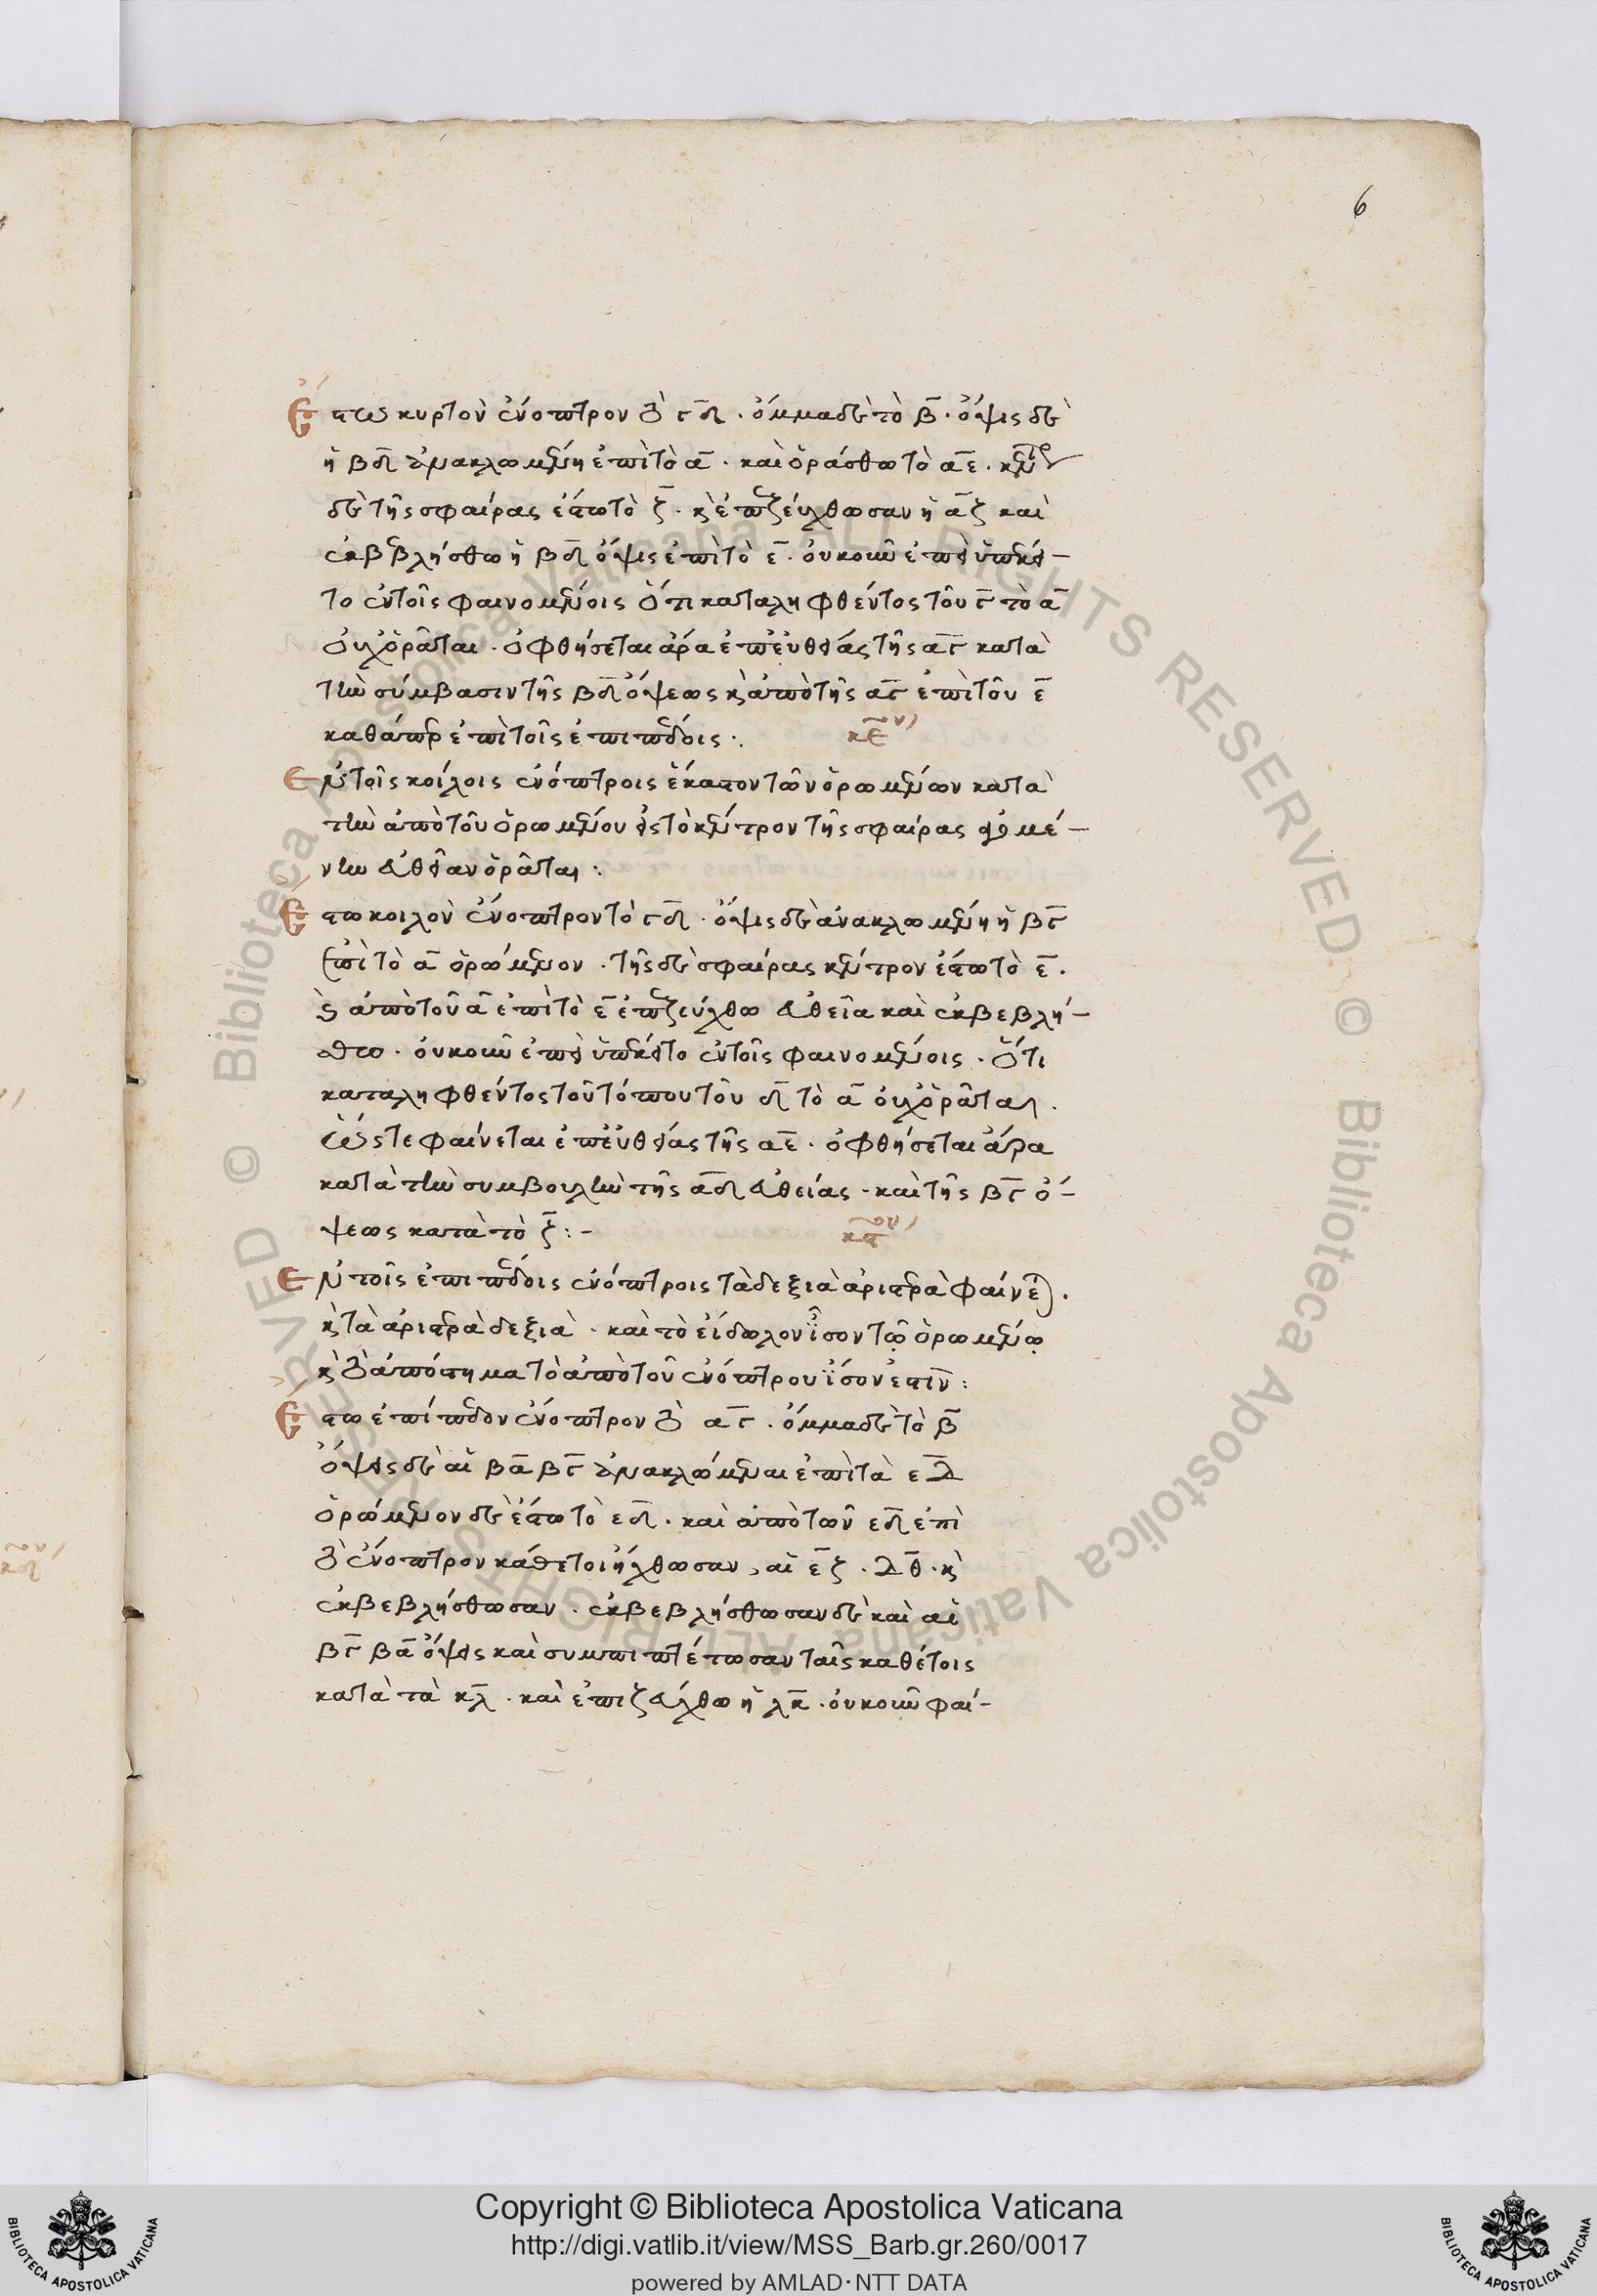 6
Ἔστω κυρτὸν ἐνοπτρον τὸ γδ̅ . ὄμμα δὲ τὸ β̅ . ὄψις δὲ
ἡ βδ̅ ἀνακλωμένη ἐπὶ τὸ α̅ . καὶ ὁράσθω τὸ α̅ε . κέντρον
δὲ τῆς σφαίρας ἔστω τὸ ζ̅ . κὶ ἐπεζεύχθωσαν ἡ α̅ζ καὶ
ἐκβεβλήσθω ἡ βδ̅ ὄψις ἐπὶ τὸ ε̅ . οὐκοῦν ἐπεὶ ὑπέκει-
το ἐν τοῖς φαινομένοις ὅτι καταληφθέντος τοῦ γ̅ τὸ α̅
οὐχ ὁρᾶται . ὀφθήσεται ἄρα ἐπ' εὐθείας τῆς α̅γ̅ κατὰ
τὴν σύμβασιν τῆς βδ̅ ὄψεως κὶ ἀπὸ τῆς α̅γ̅ ἐπὶ τοῦ ε̅
καθάπερ ἐπὶ τοῖς ἐπιπέδοις :
κε̅ον
Ἐν τοῖς κοίλοις ἐνόπτροις ἕκαστον τῶν ὁρωμένων κατὰ
τὴν ἀπὸ τοῦ ὁρωμένου εἰς τὸ κέντρον τῆς σφαίρας ἀγομέ-
νην εὐθεῖαν ὁρᾶται :
Ἔστω κοιλὸν ἐνοπτρον τὸ γδ̅ . ὄψις δὲ ἀνακλωμένη ἡ βγ̅
ἐπὶ τὸ α̅ ὁρώμενον . τῆς δὲ σφαίρας κέντρον ἔστω τὸ ε̅ .
κὶ ἀπὸ τοῦ α̅ ἐπὶ τὸ ε̅ ἐπεζεύχθω εὐθεῖα καὶ ἐκβεβλή-
σθω . οὐκοῦν ἐπεὶ ὑπέκειτο ἐν τοῖς φαινομένοις . ὅτι
καταληφθέντος τοῦ τόπου τοῦ δ̅ τὸ α̅ οὐχ ὁρᾶται .
ὥστε φαίνεται ἐπ' εὐθείας τῆς α̅ε̅ . ὀφθήσεται ἄρα
κατὰ τὴν συμβουλὴν τῆς α̅δ̅ εὐθείας . καὶ τῆς βγ̅ ὄ-
ψεως κατὰ τὸ ζ̅ : -
κϛ̅ον
Ἐν τοῖς ἐπιπέδοις ἐνόπτροις τὰ δεξιὰ ἀριστερὰ φαίνεται .
κὶ τὰ ἀριστερὰ δεξιὰ . καὶ τὸ εἴδωλον ἴσον τῷ ὁρωμένῳ
κὶ τὸ ἀπόστημα τὸ ἀπὸ τοῦ ἐνόπτρου ἴσον ἐστὶν :
Ἔστω ἐπίπεδον ἐνοπτρον τὸ α̅γ̅ . ὄμμα δὲ τὸ β̅
ὄψεις δὲ αἱ βα̅ βγ̅ ἀνακλώμεναι ἐπὶ τὰ ε̅δ̅
ὁρώμενον δὲ ἔστω τὸ εδ̅ . καὶ ἀπὸ τῶν εδ̅ ἐπὶ
τὸ ἐνοπτρον κάθετοι ἤχθωσαν , αἱ ε̅ζ . δ̅θ̅ . κὶ
ἐκβεβλήσθωσαν . ἐκβεβλήσθωσαν δὲ καὶ αἱ
βγ̅ βα̅ ὄψεις καὶ συμπιπτέτωσαν ταῖς καθέτοις
κατὰ τὰ κλ̅ . καὶ ἐπιζεύχθω ἡ λκ̅ . οὐκοῦν φαί-
© Biblioteca Apostolica Vaticana ALL RIGHTS RESERVED © Biblioteca Apostolica Vaticana ALL RIGHTS RESERVED
Copyright © Biblioteca Apostolica Vaticana
http://digi.vatlib.it/view/MSS_Barb.gr.260/0017
powered by AMLAD·NTT DATA
BIBLIOTECA APOSTOLICA VATICANA
BIBLIOTECA APOSTOLICA VATICANA